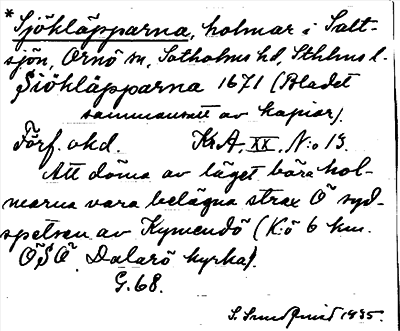 * Sjökläpparna, holmar i Salt-
sjön, Ornö sn, Sotholms hd, Sthlms l.
Siöhläpparna 1671 (Bladet
sammansatt av kopior).
Förf. okd. KrA, XX, N:o 13.
Att döma av läget böra hol-
marna vara belägna strax Ö syd-
spetsen av Kymendö (K:ö 6 km.
ÖSÖ Dalarö kyrka).
G. 68.
S. 1935.